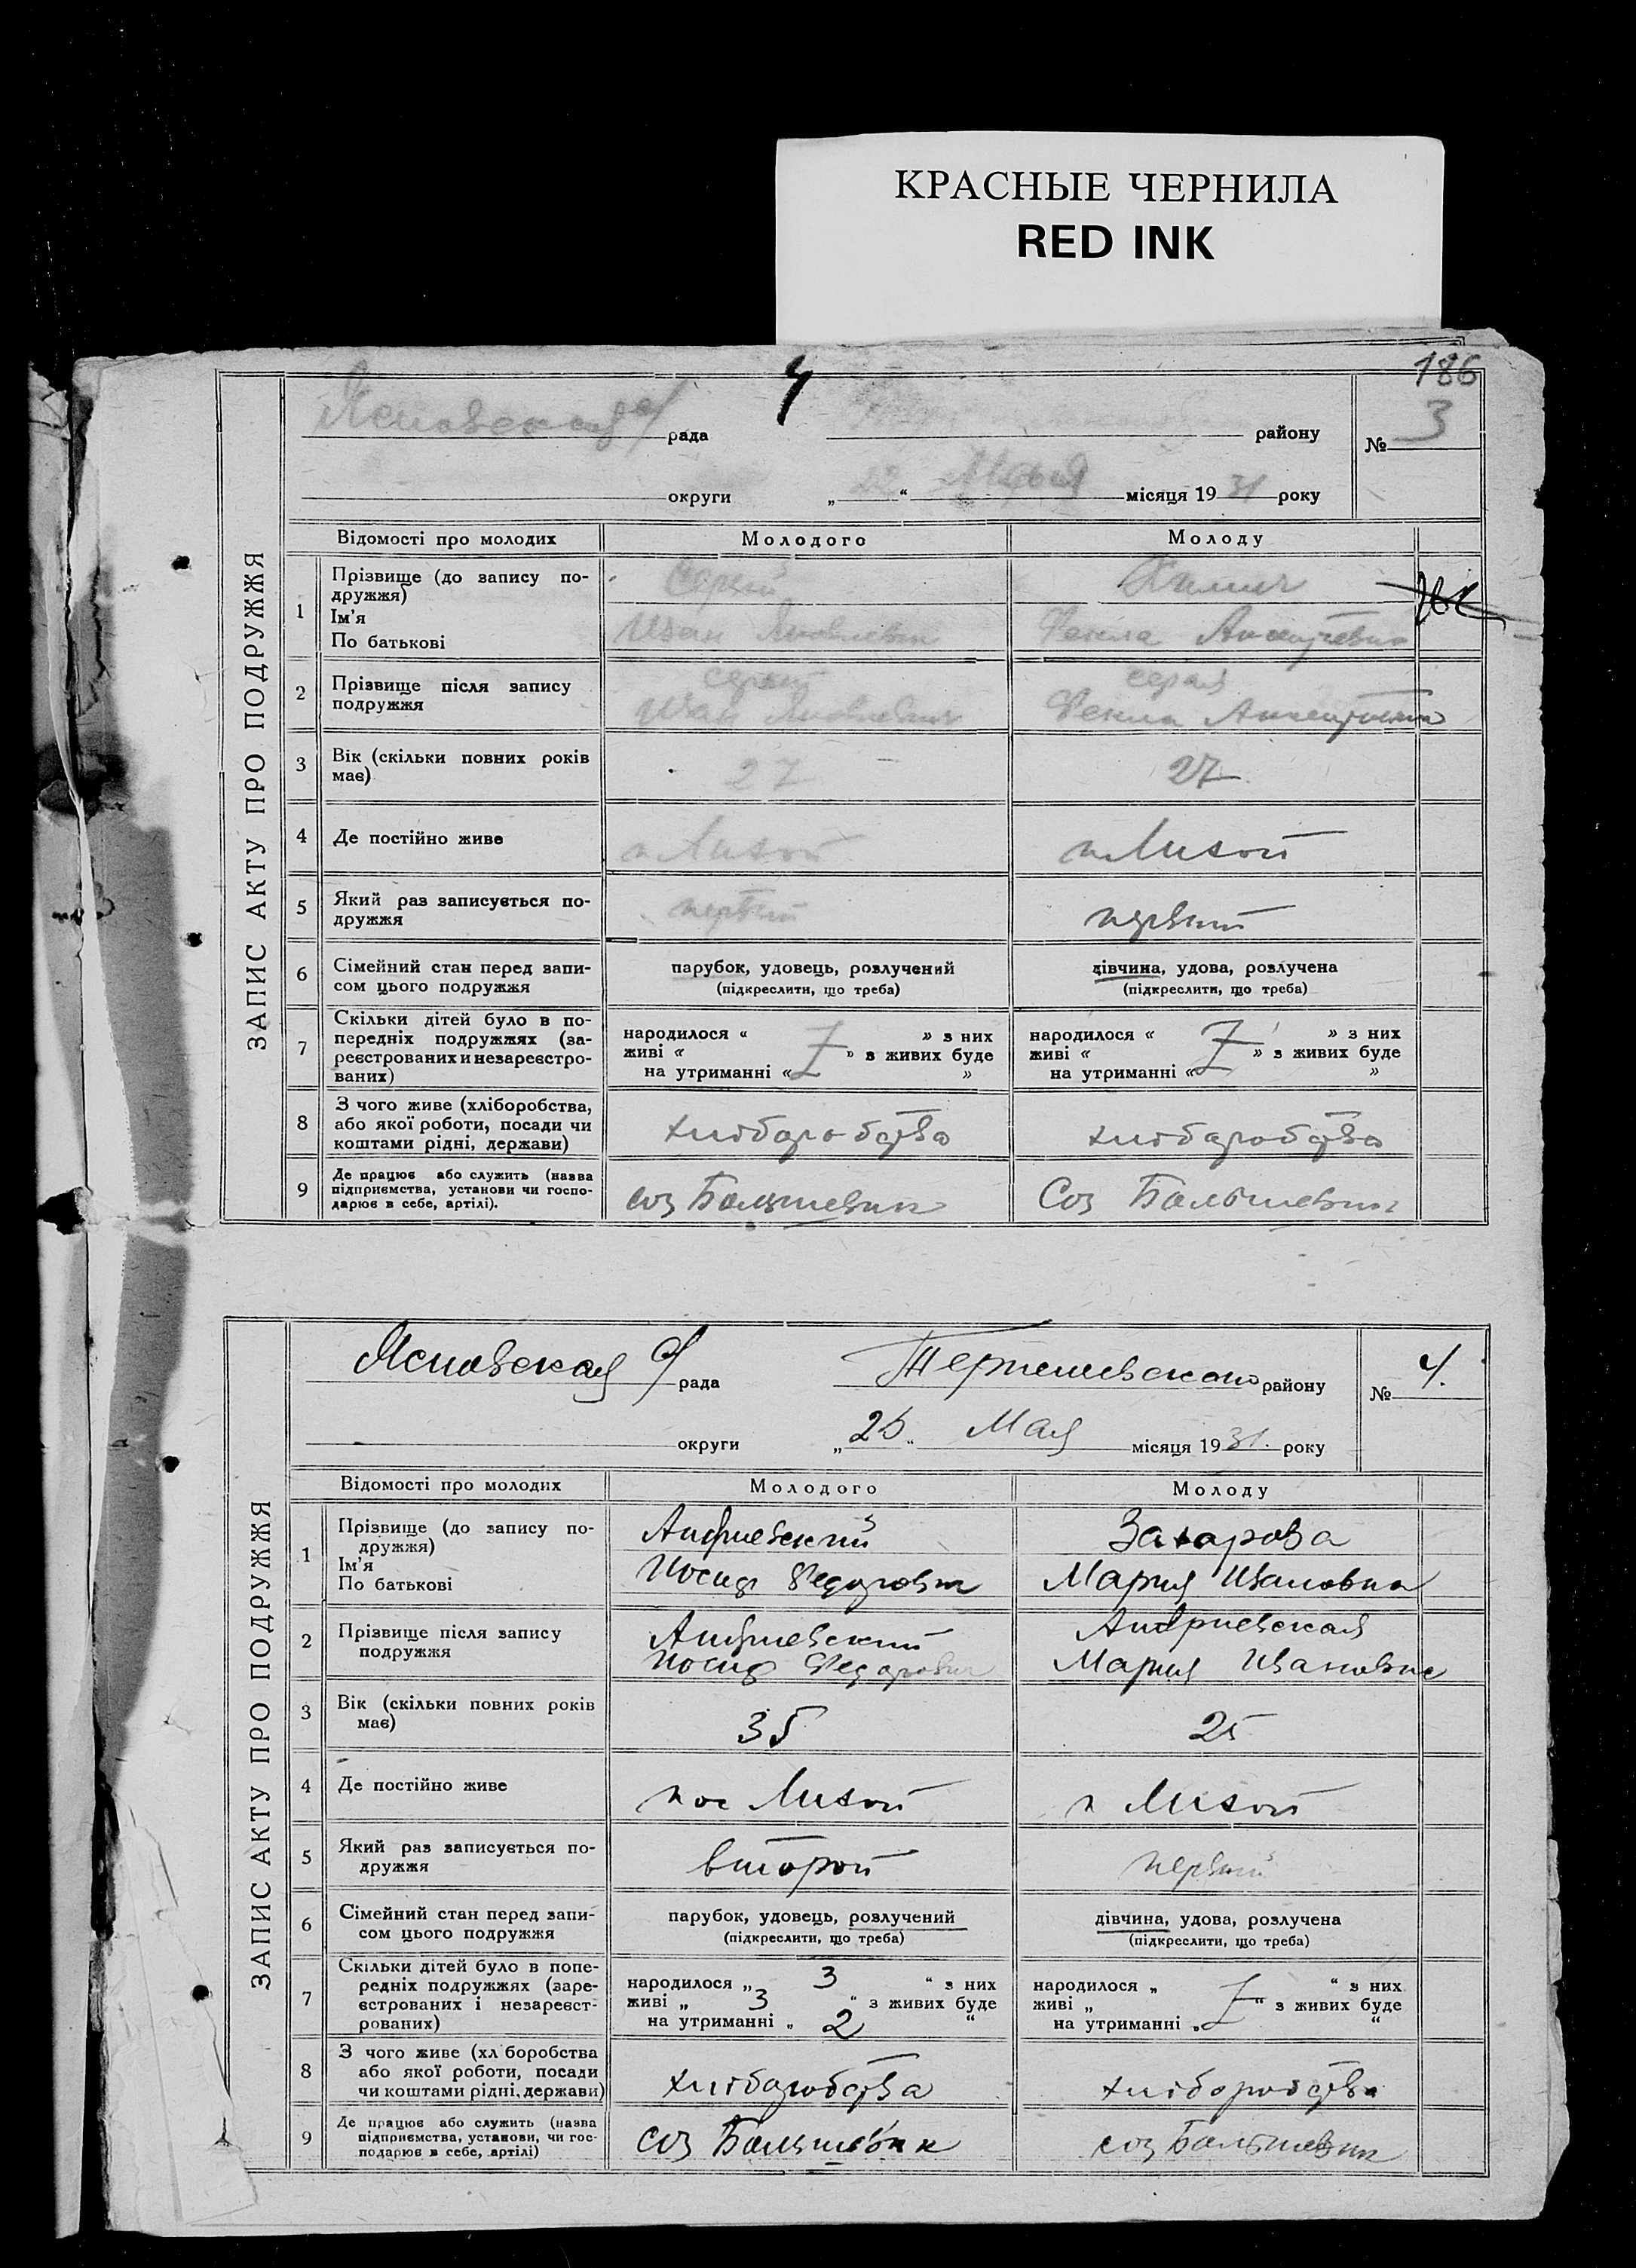 КРАСНЫЕ ЧЕРНИЛА
RED INK
186
4
рада району № 3
округи „ 22 “ місяця 19 31 року
ЗАПИС АКТУ ПРО ПОДРУЖЖЯ
Відомості про молодих Молодого Молоду
1 Прізвище (до запису по-
дружжя)
Ім'я
По батькові
Серый
Иван Яковлевич
Фекла
2 Прізвище після запису
подружжя
серый серая
Иван Яковлевич Фекла
3 Вік (скільки повних років
має)
27 27
4 Де постійно живе п Лизой п Лизой
5 Який раз записується по-
дружжя
первый первый
6 Сімейний стан перед запи-
сом цього подружжя
парубок, удовець, розлучений дівчина, удова, розлучена
(підкреслити, що треба) (підкреслити, що треба)
7 Скільки дітей було в по-
передніх подружжях (за-
реєстрованих и незареєстро-
ваних)
народилося « » з них народилося « » з них
живі « » з живих буде живі « » з живих буде
на утриманні « » на утриманні « »
8 З чого живе (хліборобства,
або якої роботи, посади чи
коштами рідні, держави)
хлібаробства хлібаробства
9 Де працює або служить (назва
підприємства, установи чи госпо-
дарює в себе, артілі).
соз Большевик Соз Большевик
рада району № 4.
округи „ 25 “ Мая місяця 19 31. року
ЗАПИС АКТУ ПРО ПОДРУЖЖЯ
Відомості про молодих Молодого Молоду
1 Прізвище (до запису по-
дружжя)
Ім'я
По батькові
Андриевский Захарова
Иосиф Федорович Мария Ивановна
2 Прізвище після запису
подружжя
Андриевский Андриевская
Иосиф Федорович Мария Ивановна
3 Вік (скільки повних років
має)
35 25
4 Де постійно живе пос Лизой п Лизой
5 Який раз записується по-
дружжя
второй первый
6 Сімейний стан перед запи-
сом цього подружжя
парубок, удовець, розлучений дівчина, удова, розлучена
(підкреслити, що треба) (підкреслити, що треба)
7 Скільки дітей було в попе-
редніх подружжях (заре-
єстрованих і незареєст-
рованих)
народилося „ 3 “ з них народилося „ “ з них
живі „ 3 “ з живих буде живі „ “ з живих буде
на утриманні „ 2 “ на утриманні „ “
8 З чого живе (хл боробства
або якої роботи, посади
чи коштами рідні, держави)
хлібаробства хліборобства
9 Де працює або служить (назва
підприємства, установи, чи гос-
подарює в себе, артілі)
соз Большевик соз Большевик